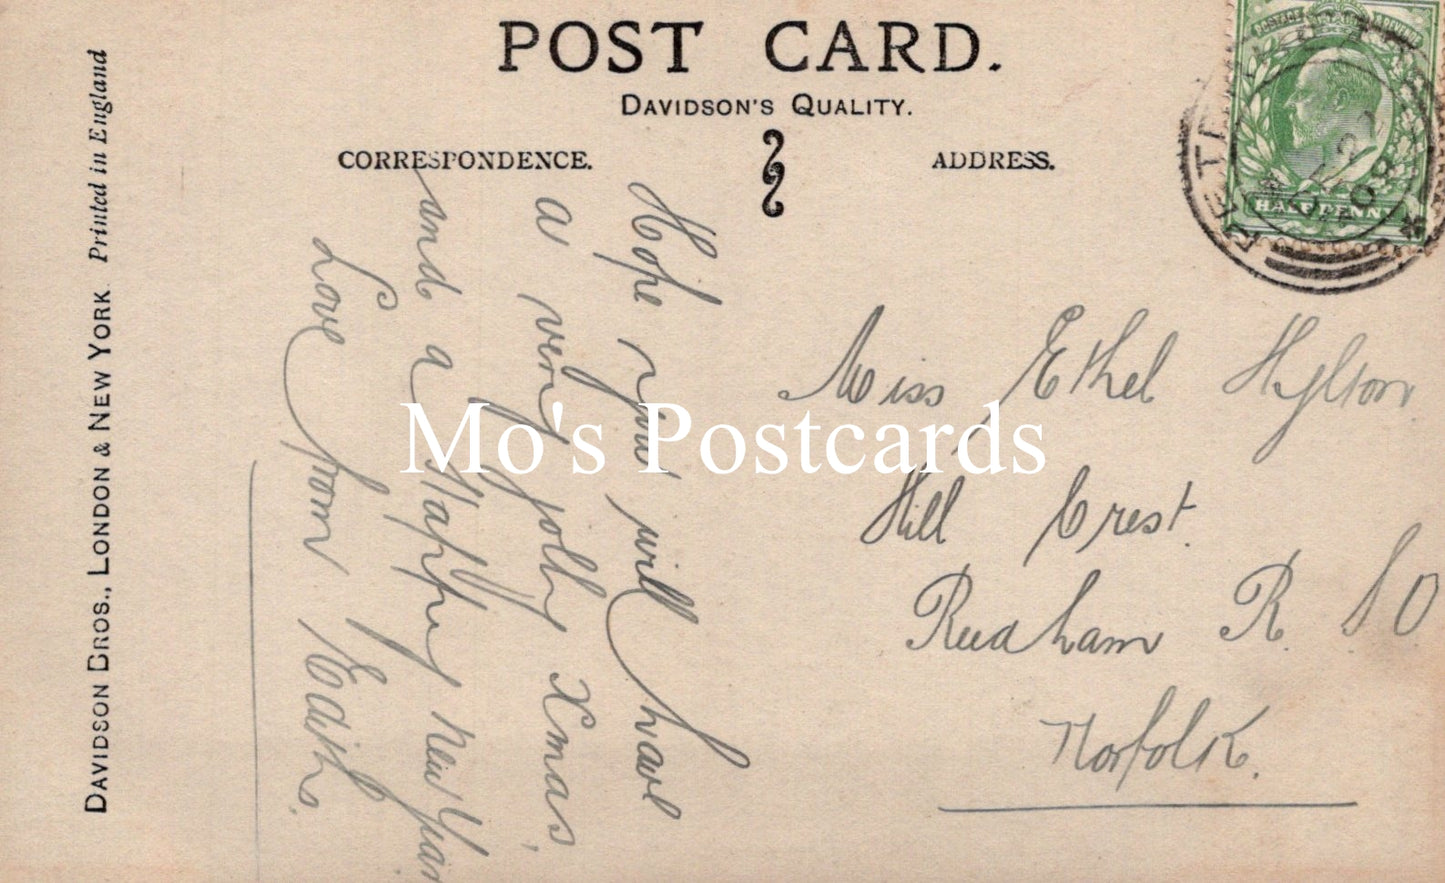 POST CARD.
DAVIDSON'S QUALITY.
CORRESPONDENCE.
ADDRESS.
HALFPENNY
Hope you will have
a very jolly Xmas,
and a Happy New Year
Love from Edith.
Miss Ethel Hylton
Hill Crest.
Reedham R. S O
Norfolk.
DAVIDSON BROS., LONDON & NEW YORK Printed in England
Mo's Postcards